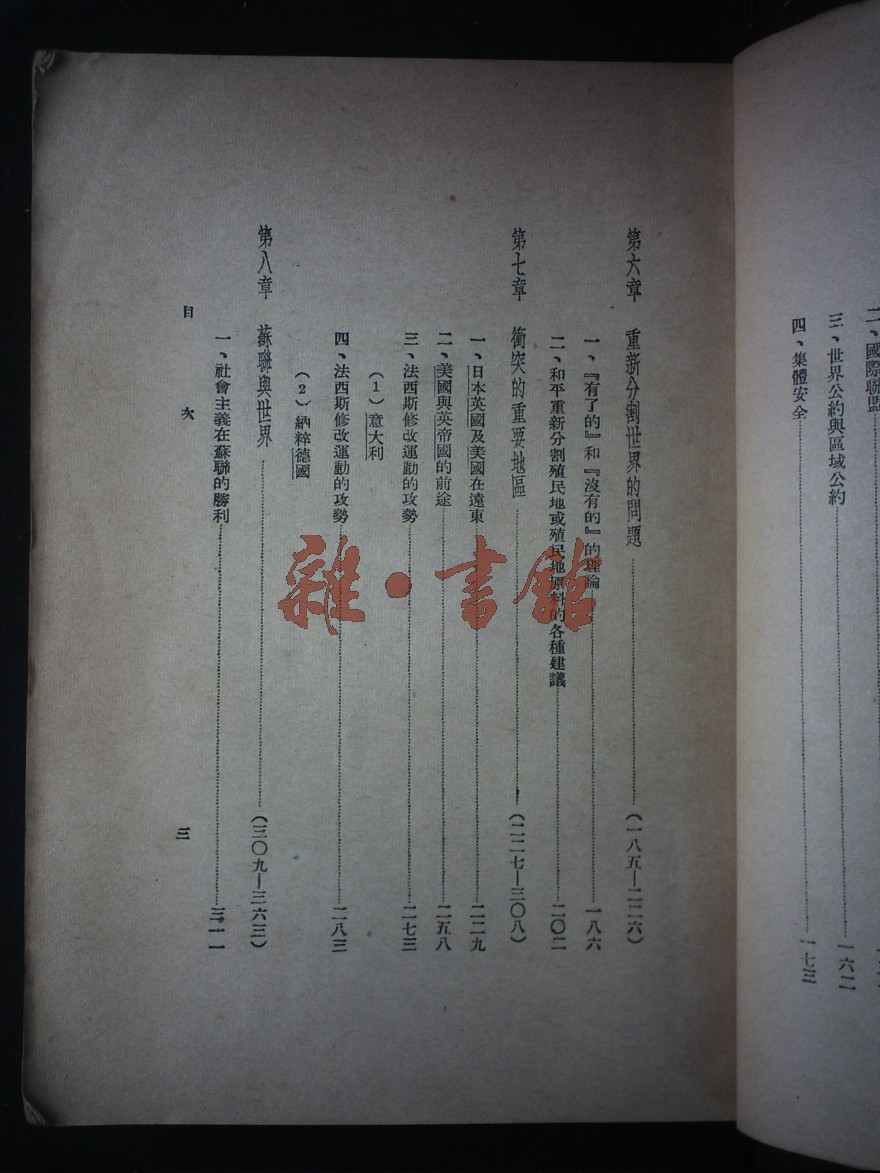 二、國際聯盟
三、世界公約與區域公約 一六二
四、集體安全 一七三
第六章 重新分割世界的問題 (一八五—二二六)
一、『有了的』和『沒有的』的理論 一八六
二、和平重新分割殖民地或殖民地原料的各種建議 二〇二
第七章 衝突的重要地區 (二二七—三〇八)
一、日本英國及美國在遠東 二二九
二、美國與英帝國的前途 二五八
三、法西斯修改運動的攻勢 二七三
(1)意大利
四、法西斯修改運動的攻勢 二八三
(2)納粹德國
第八章 蘇聯與世界 (三〇九—三六三)
一、社會主義在蘇聯的勝利 三一一
目次 三
雜·書館